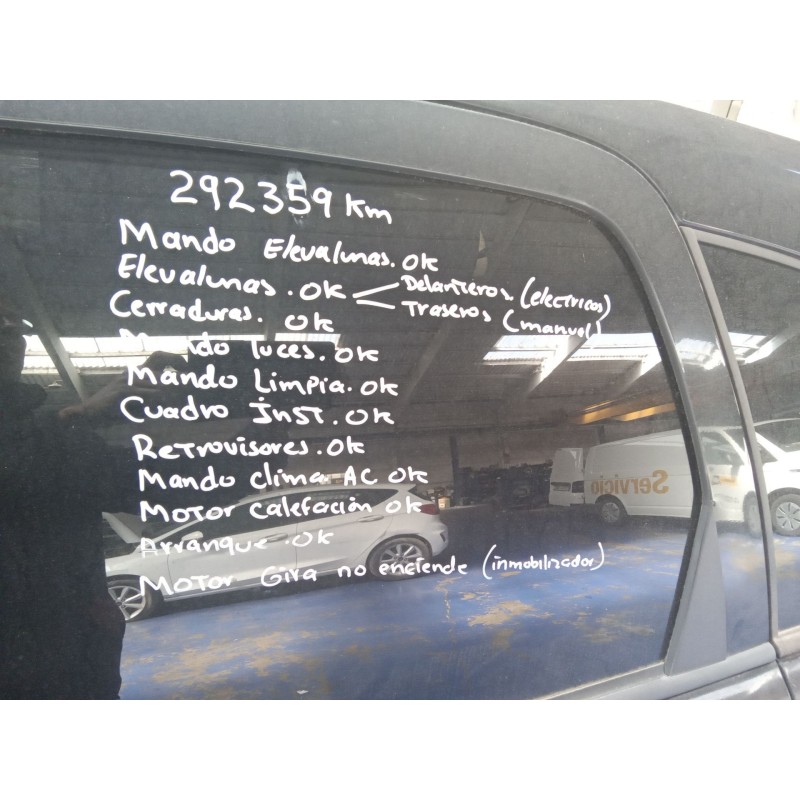 292359 Km
Mando Elevalunas. OK
Elevalunas. OK Delanteros (electricos)
Traseros (manual)
Cerraduras. OK
Mando luces. OK
Mando Limpia. OK
Cuadro Inst. OK
Retrovisores. OK
Mando clima AC OK
Motor calefación OK
Arranque. OK
Motor Gira no enciende (inmobilizador)
Servicio